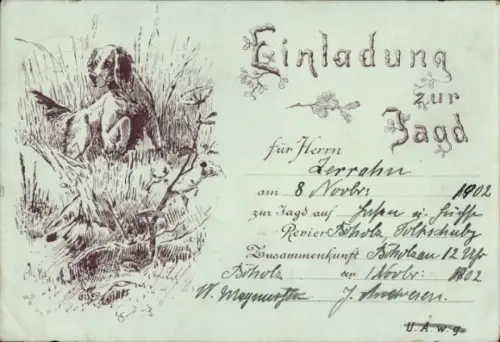 Einladung
zur
Jagd
für Herrn
Zerrahn
am 8 Novbr: 1902
zur Jagd auf Hasen u. Füchse
Revier Boholz
Zusammenkunft 12 Uhr
Boholz den 1 Novbr: 1902
J. Andresen.
U. A. w. g.